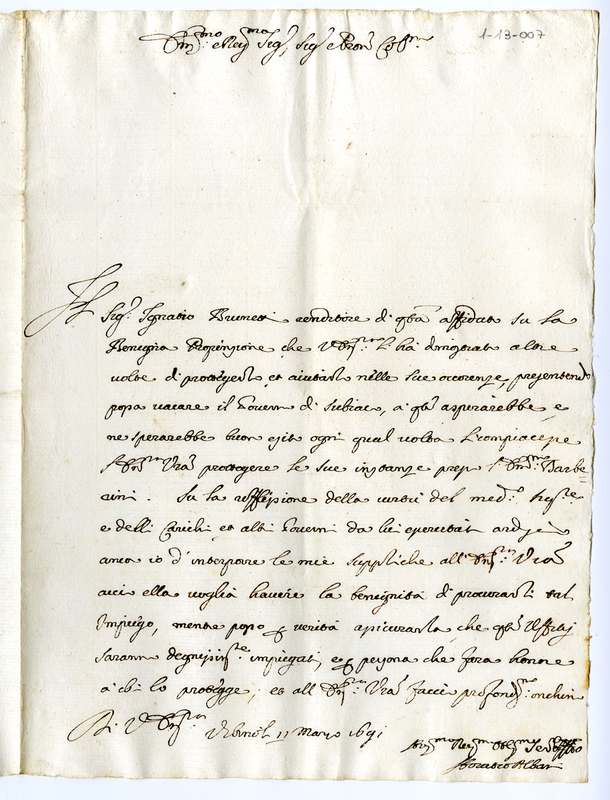 Em:mo e Rev:mo Sig:, Sig: e Pron Col:mo
1-13-007
Il Sig: Ignatio Brunetti renditore di q:ta affidato su la
Benigna Propensione che V Em:za l'ha dimostrata altre
volte di proteggerlo, et aiutarlo nelle sue occorenze, presentendo
possa vacare il Governo di Subiaco, a q:to asperarebbe, e
ne sperarebbe buon esito ogni qual volta si compiacesse
l'Em:za V:ra proteggere le sue instanze presso l'Em:mo Barbe=
rini. Su la riflessione della virtù del med:
e delli Carichi et altri Governi da lui esercitati ardisco
anco io d'interporre le mie suppliche all'Em:za V:ra
acciò ella voglia havere la benignità di procurarli tal
impiego, mentre posso p verità assicurarla, che q:ti Uffitij
saranno degnissim:te impiegati, e p persona che farà honore
a chi lo protegge, et all'Em:za V:ra faccio profondiss: inchino
Di V Em:za
Urbino li 11 Marzo 1691
Horatio Albani